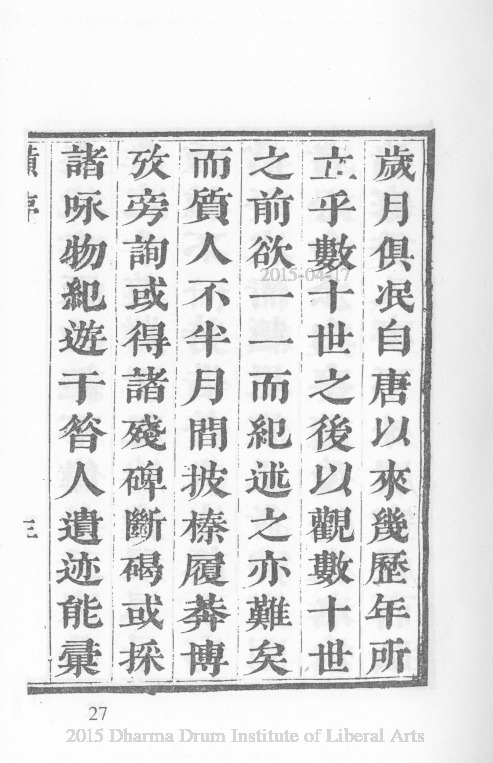 歲月俱泯自唐以來幾歷年所
立乎數十世之後以觀數十世
之前欲一一而紀述之亦難矣
而質人不半月間披榛履莽博
攷旁詢或得諸殘碑斷碣或採
諸咏物紀遊于昝人遺迹能彙
三
27
2015-04-17
2015 Dharma Drum Institute of Liberal Arts